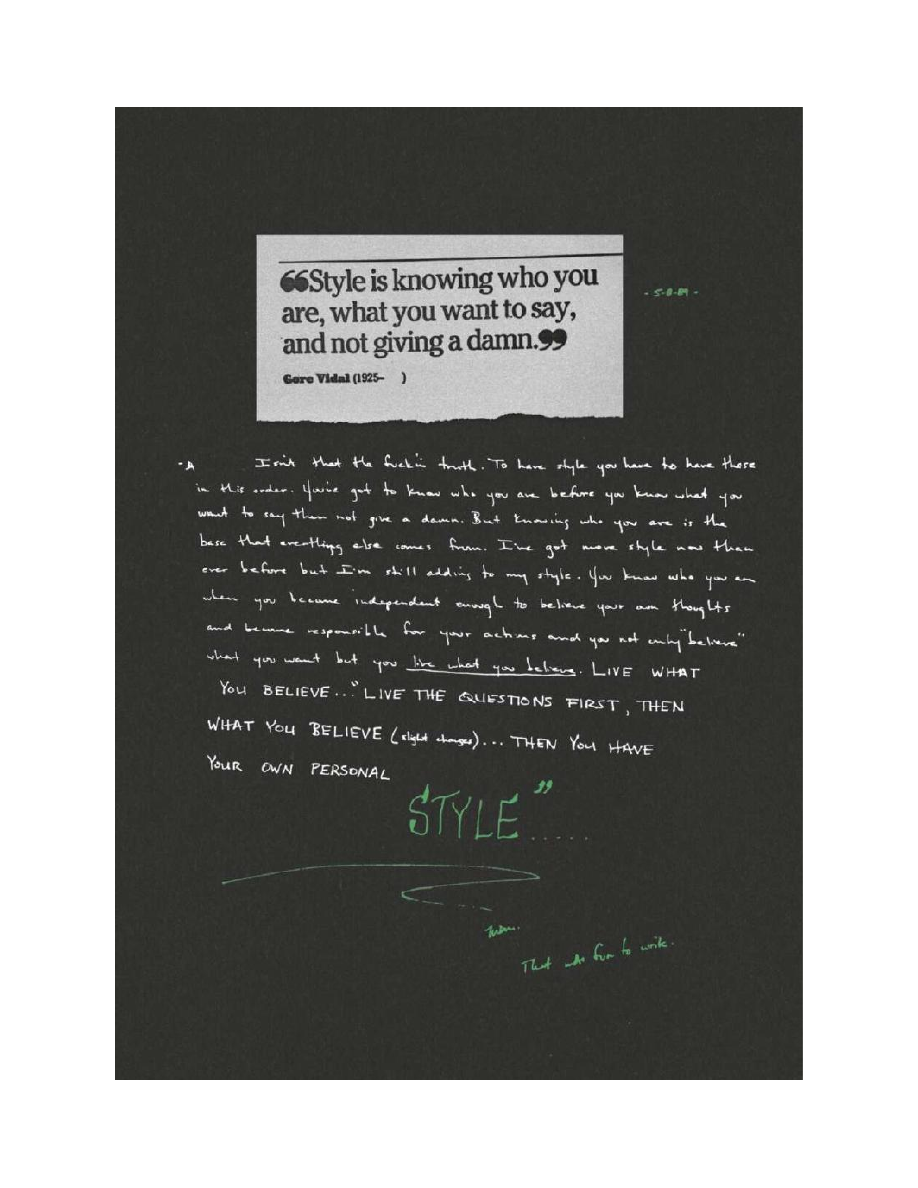 “Style is knowing who you
are, what you want to say,
and not giving a damn.”
Gore Vidal (1925- )
- 5-8-89 -
Isn't that the fuckin truth. To have style you have to have these
in this order. You've got to know who you are before you know what you
want to say then not give a damn. But knowing who you are is the
base that everything else comes from. I've got more style now than
ever before but I'm still adding to my style. You know who you are
when you become independent enough to believe your own thoughts
and become responsible for your actions and you not only "believe"
what you want but you live what you believe. LIVE WHAT
YOU BELIEVE..." LIVE THE QUESTIONS FIRST, THEN
WHAT YOU BELIEVE (slight changes)... THEN YOU HAVE
YOUR OWN PERSONAL
STYLE" .....
That was fun to write.